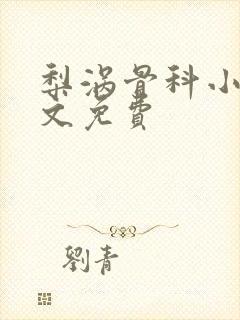 梨涡骨科小
文免费
劉青